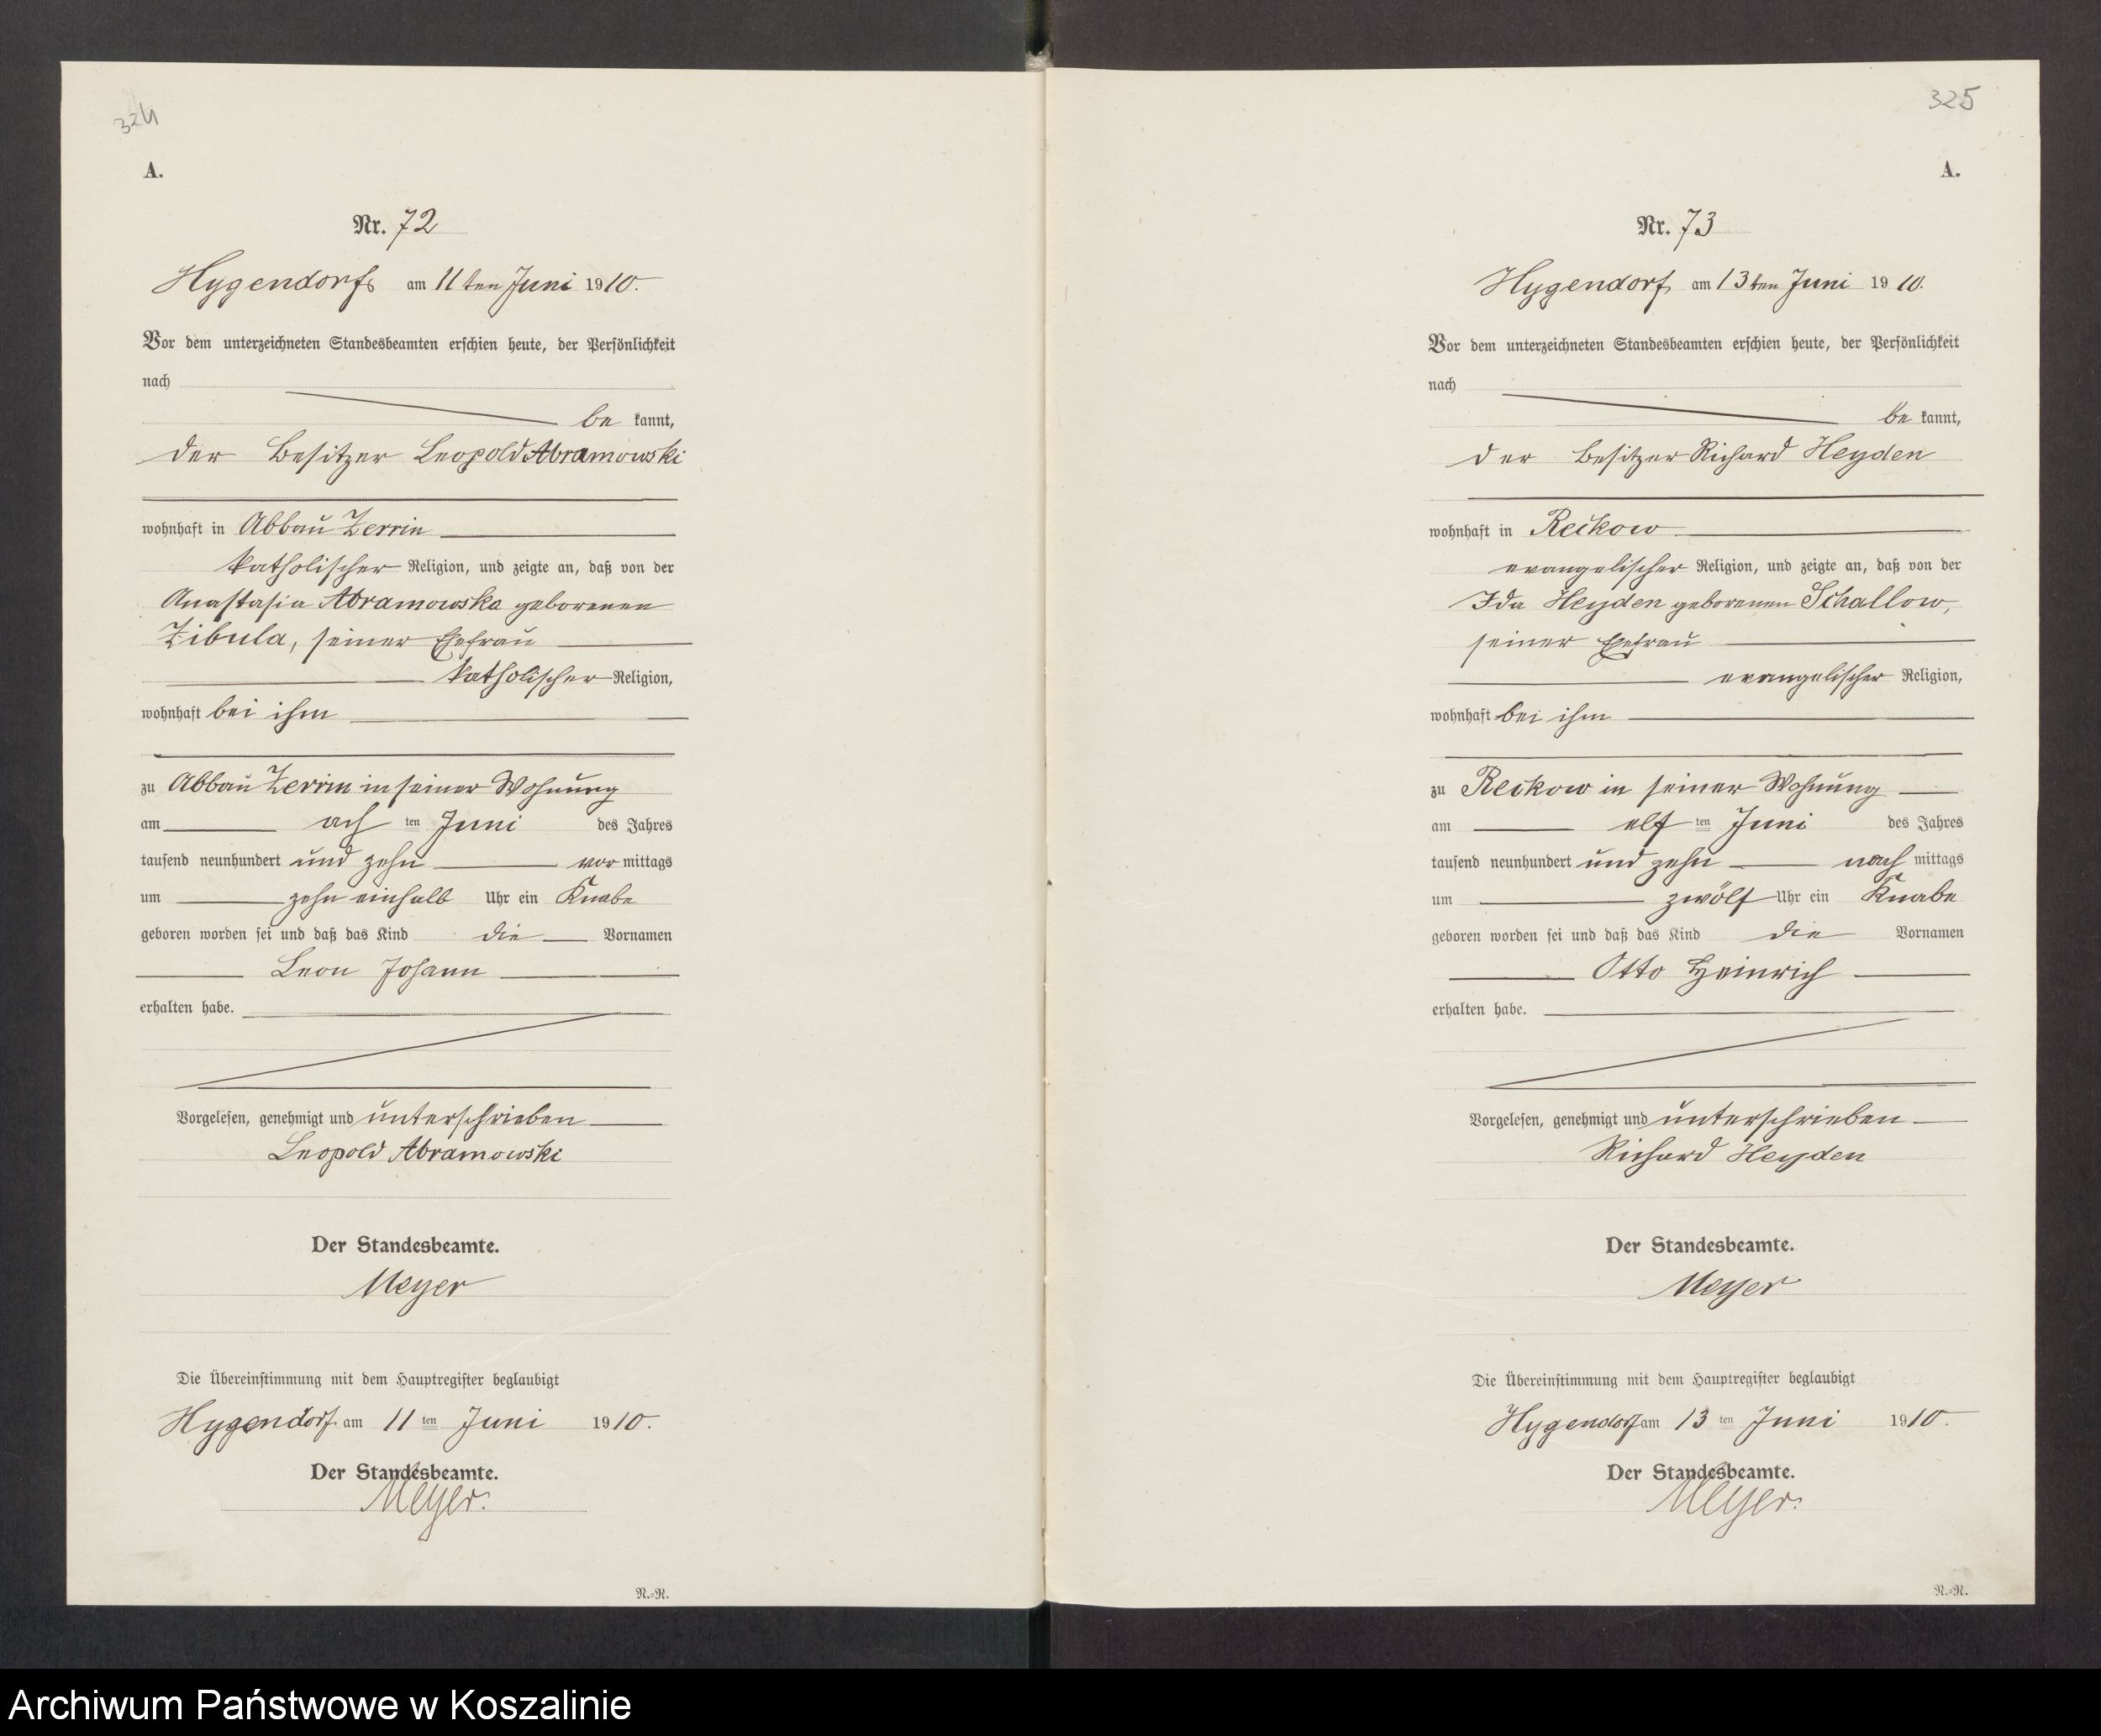 324
A.
Nr. 72
Hygendorf am 11ten Juni 1910.
Vor dem unterzeichneten Standesbeamten erschien heute, der Persönlichkeit
nach
be kannt,
der Besitzer Leopold Abramowski
wohnhaft in Abbau Zerrin
katholischer Religion, und zeigte an, daß von der
Anastasia Abramowska geborenen
Zibula, seiner Ehefrau
katholischer Religion,
wohnhaft bei ihm
zu Abbau Zerrin in seiner Wohnung
am ach ten Juni des Jahres
tausend neunhundert und zehn vor mittags
um zehn einhalb Uhr ein Knabe
geboren worden sei und daß das Kind die Vornamen
Leon Johann
erhalten habe.
Vorgelesen, genehmigt und unterschrieben
Leopold Abramowski
Der Standesbeamte.
Meyer
Die Übereinstimmung mit dem Hauptregister beglaubigt
Hygendorf am 11 ten Juni 1910.
Der Standesbeamte.
Meyer.
N.=N.
325
A.
Nr. 73
Hygendorf am 13ten Juni 1910.
Vor dem unterzeichneten Standesbeamten erschien heute, der Persönlichkeit
nach
be kannt,
der Besitzer Richard Heyden
wohnhaft in Reckow
evangelischer Religion, und zeigte an, daß von der
Ida Heyden geborenen Schallow,
seiner Ehefrau
evangelischer Religion,
wohnhaft bei ihm
zu Reckow in seiner Wohnung
am elf ten Juni des Jahres
tausend neunhundert und zehn nach mittags
um zwölf Uhr ein Knabe
geboren worden sei und daß das Kind die Vornamen
Otto Heinrich
erhalten habe.
Vorgelesen, genehmigt und unterschrieben
Richard Heyden
Der Standesbeamte.
Meyer
Die Übereinstimmung mit dem Hauptregister beglaubigt
Hygendorf am 13 ten Juni 1910.
Der Standesbeamte.
Meyer.
N.=N.
Archiwum Państwowe w Koszalinie